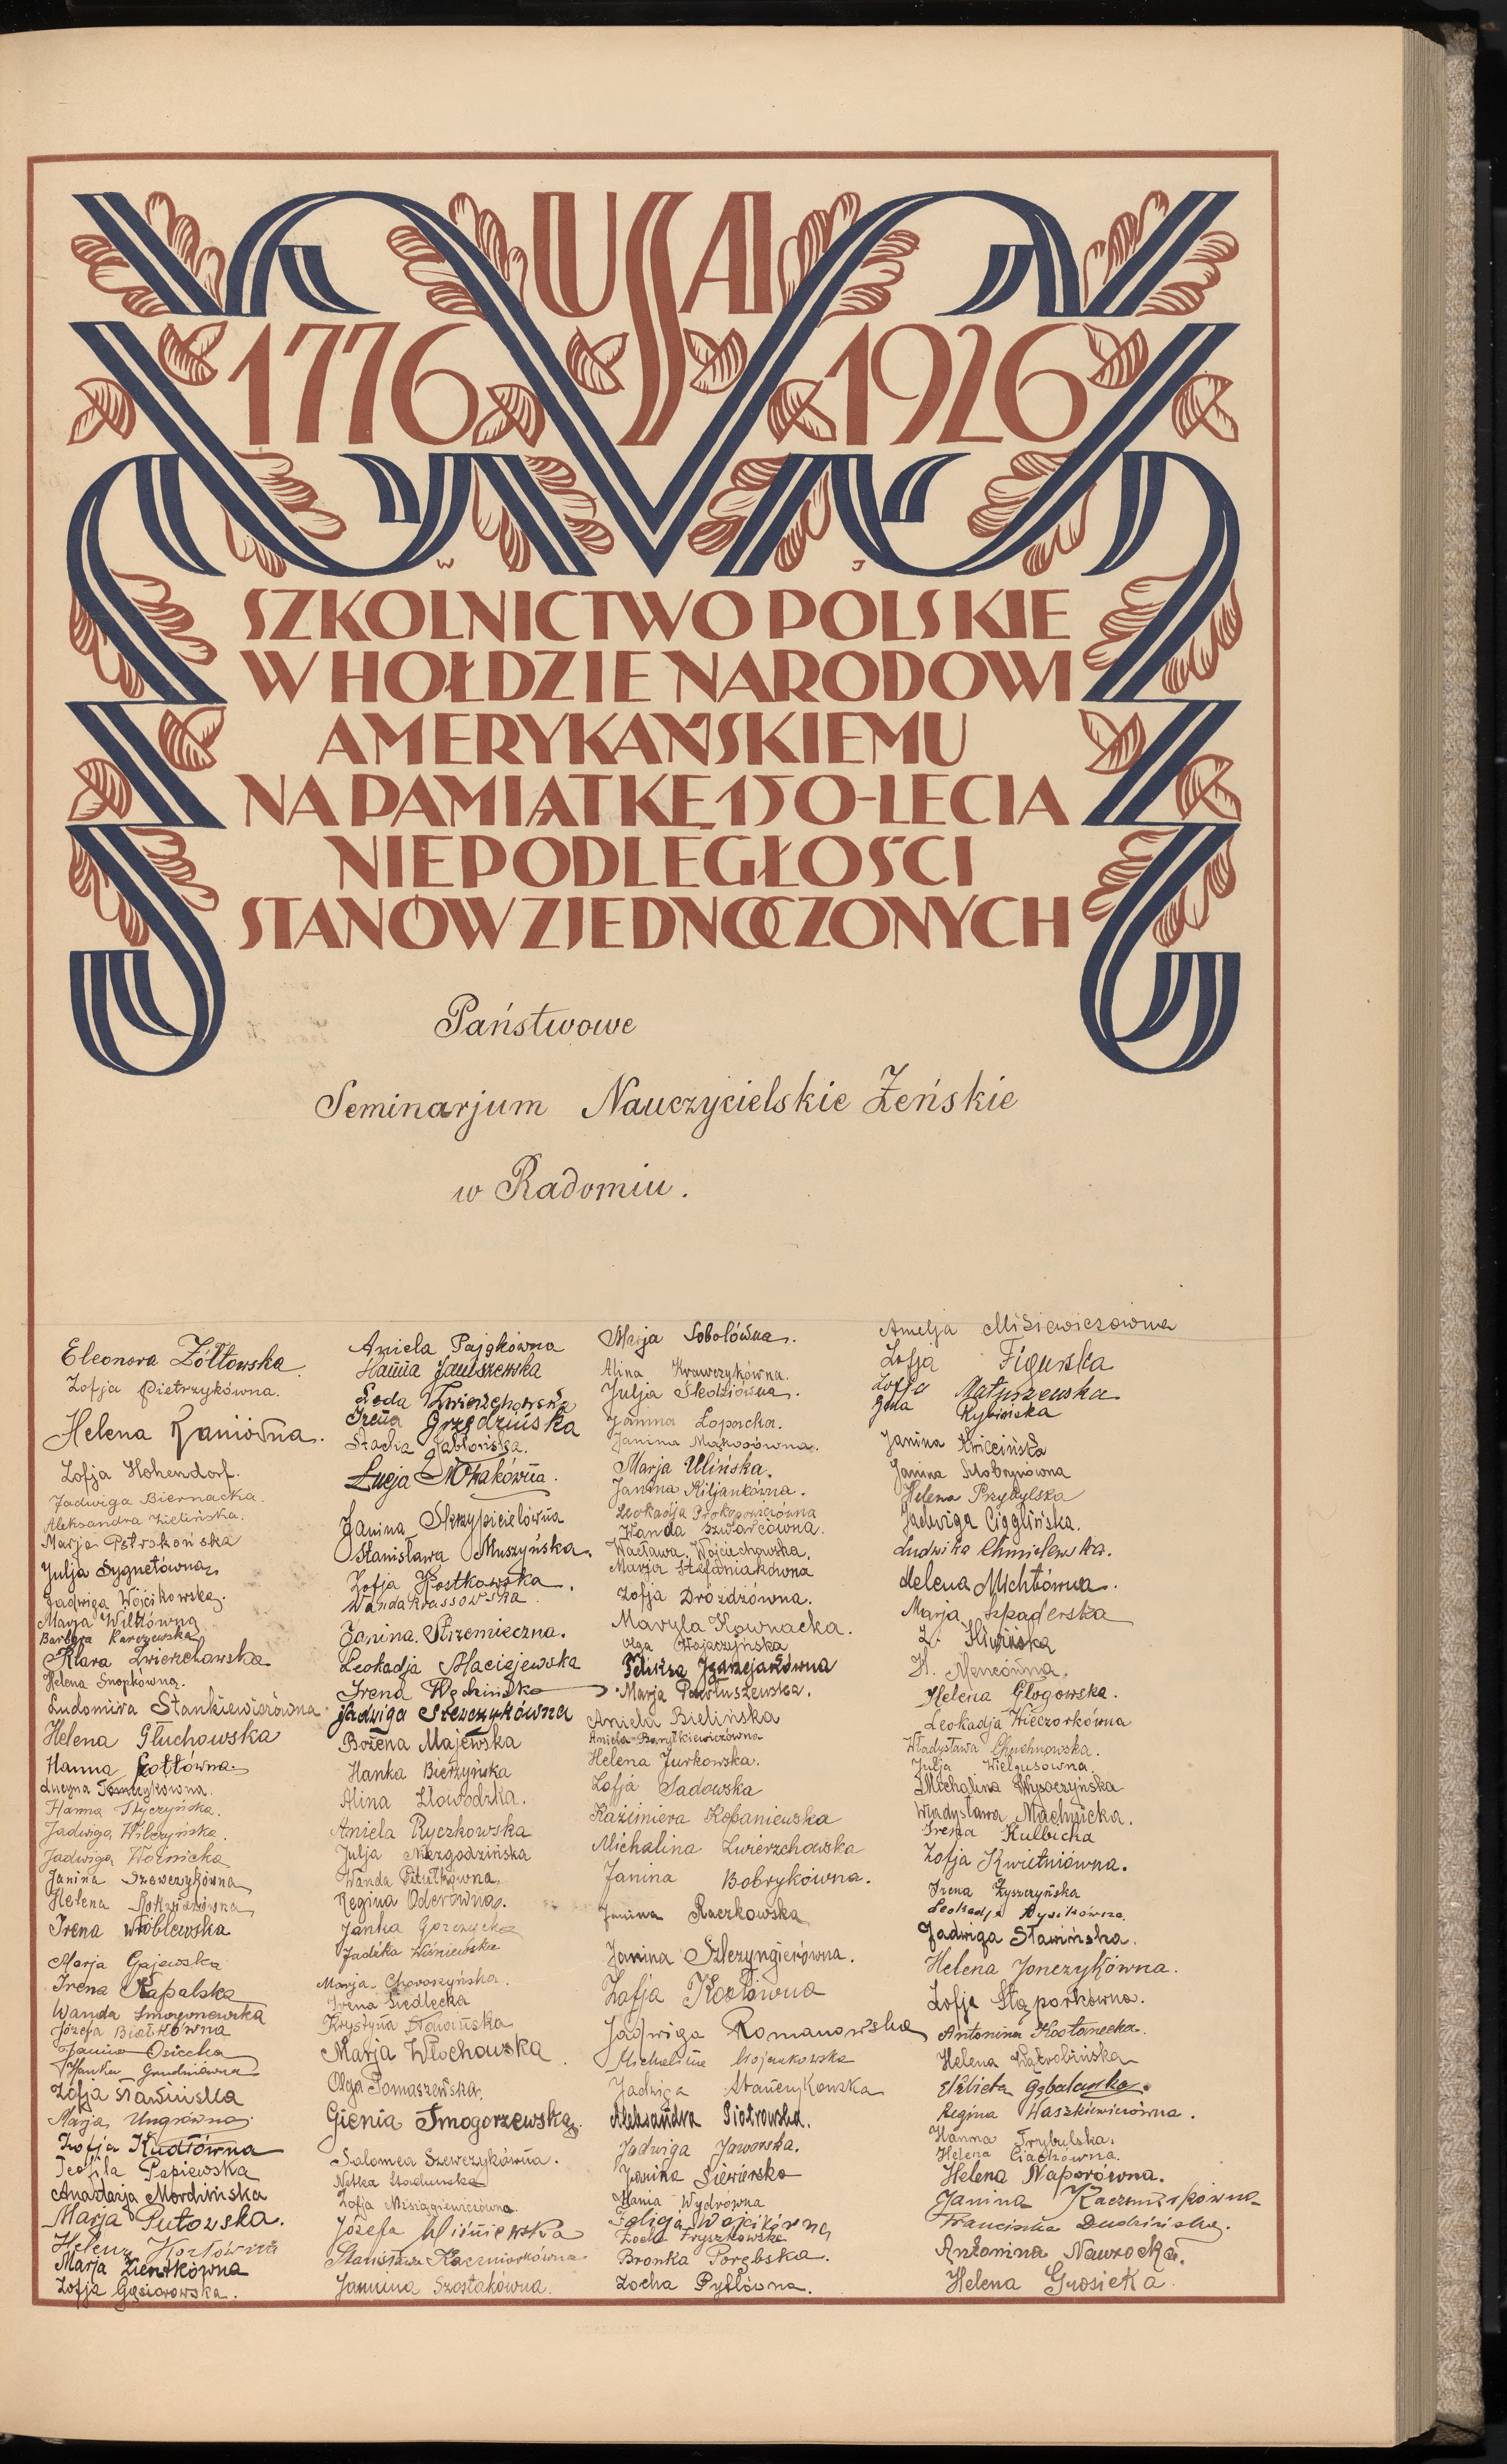 USA
1776 1926
W J
SZKOLNICTWO POLSKIE
W HOŁDZIE NARODOWI
AMERYKAŃSKIEMU
NA PAMIĄTKĘ 150-LECIA
NIEPODLEGŁOŚCI
STANÓW ZJEDNOCZONYCH
Państwowe
Seminarjum Nauczycielskie Żeńskie
w Radomiu.
Eleonora Żółtowska
Zofja Pietrzykówna.
Helena Kaniówna.
Zofja Hohendorf.
Jadwiga Biernacka.
Aleksandra Zielińska.
Marja Potrokońska
Julja Sygnetówna
Jadwiga Wójcikowska.
Marja Wilkówna
Barbara Karczewska
Klara Zwierzchowska
Helena Snopkówna.
Ludomira Stankiewiczówna
Helena Głuchowska
Hanna Kottówna.
Lucyna Tomczykówna.
Hanna Styczyńska.
Jadwiga Wilczyńska.
Jadwiga Woźnicka
Janina Szewczykówna
Helena
Irena Wróblewska
Marja Gajewska
Irena Kapalska
Wanda
Józefa Białkówna
Janina Osiecka
Hanka Grudniówna
Zofja Sławińska
Marja Ungrówna.
Zofja Kudłówna
Teofila Papiewska
Anastazja Mordzińska
Marja Putowska.
Helena Kozłówna
Marja Zientkówna
Zofja Gąsiorowska.
Aniela Pajgkówna
Hanna Janiszewska
Loda Zwierzchowska
Irena Grzędzińska
Stacha Jabłońska.
Łucja Nowakówna.
Janina Skrzypicielówna
Stanisława Muszyńska.
Zofja Kostkowska.
Wanda Krassowska.
Janina Strzemieczna.
Leokadja Maciejewska
Irena Wędzińska
Jadwiga Szewczykówna
Bożena Majewska
Hanka Bierzyńska
Alina Złowodzka.
Aniela Ryczkowska
Julja Niezgodzińska
Wanda Pitułkówna.
Regina Oderówna.
Janka Gorzycka
Jadźka Wiśniewska
Marja Choroszyńska.
Irena Siedlecka
Krystyna
Marja Włochowska
Olga Tomaszewska.
Gienia Smogorzewska.
Salomea Szewczykówna.
Natka
Zofja Misiągiewiczówna.
Józefa Wiśniewska
Stanisława Kaczmarkówna
Jannina Szostakówna.
Marja Sobolówna.
Alina Krawczykówna.
Julja Śledziówna.
Janina Łopacka.
Janina Makosówna.
Marja Ulińska.
Janina Kiljankówna.
Leokadja Prokopowiczówna
Wanda Szwarcówna.
Wacława Wojciechowska.
Marja Stefaniakówna
Zofja Dróżdżówna.
Maryla Kownacka.
Olga Wojaczyńska
Feliksa Jgamejakówna
Marja Pawłuszewska.
Aniela Bielińska
Aniela Baryłkiewiczówna
Helena Jurkowska.
Zofja Sadowska
Kazimiera Kopaniewska
Michalina Zwierzchowska
Janina Bobrykówna.
Janina Raczkowska
Janina Szlezyngierówna.
Zofja Kozłówna
Jadwiga Romanowska
Michalina Wojciukowska
Jadwiga Stańczykowska
Aleksandra Piotrowska.
Jadwiga Jaworska.
Janina Siewierska
Mania Wydrówna
Felicja Wójcikówna
Zocha Fryszkowska
Bronka Porębska.
Zocha Pytlówna.
Amelja Misiewiczówna
Zofja Figurska
Zofja Matuszewska
Gena Rybińska
Janina Kwiecińska
Janina Skobryniówna
Helena Przybylska
Jadwiga Cigglińska.
Ludwika Chmielewska.
Helena Michtówna.
Marja Szpaderska
Z. Kliwińska
H. Mencówna.
Helena Głogowska.
Leokadja Wieczorkówna
Władysława Chuchnowska.
Julja Wielgusówna
Michalina Wysoczyńska
Władysława Machnicka.
Irena Kulbicka
Zofja Kwietniówna.
Irena Łyszczyńska
Leokadja Rysikówna.
Jadwiga Sławińska.
Helena Jonczykówna.
Zofja Stąporkówna.
Antonina Kostanecka.
Helena Wątrobińska
Elżbieta Gębalanka.
Regina Haszkiewiczówna.
Hanna Trybulska.
Helena Ciachówna.
Helena Naporówna.
Janina Kaczmarkówna
Franciszka Dudzińska.
Antonina Nawrocka.
Helena Grosicka.